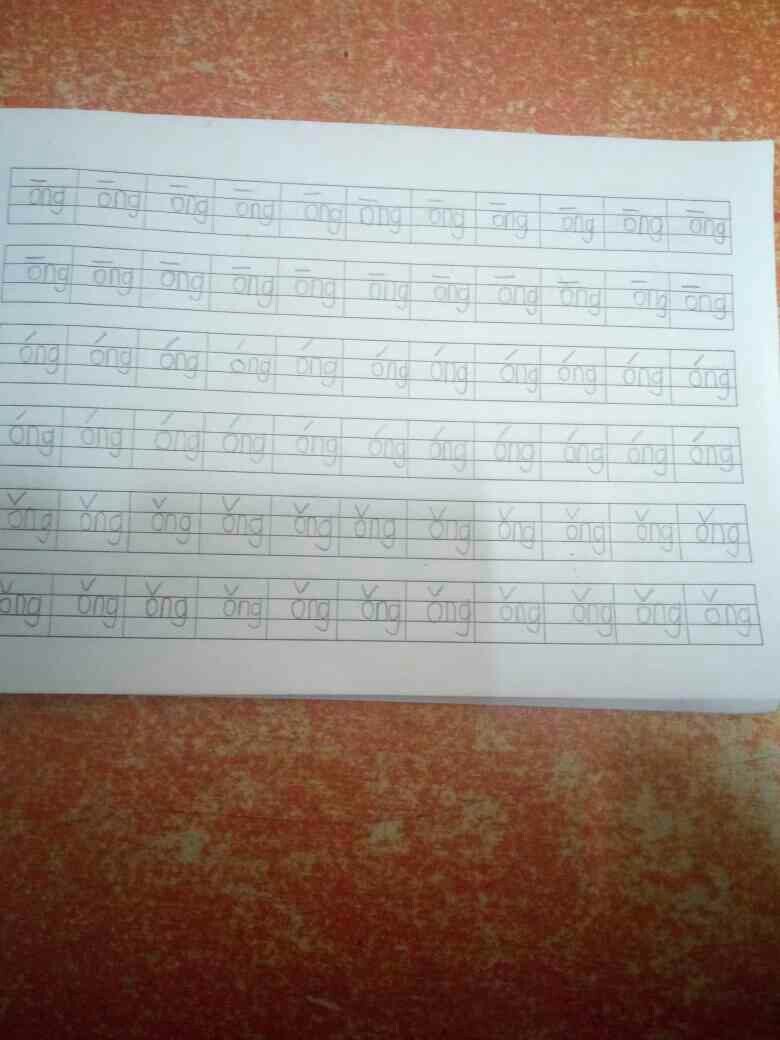 ōng ōng ōng ōng ōng ōng ōng ōng ōng ōng ōng
ōng ōng ōng ōng ōng ōng ōng ōng ōng ōng ōng
óng óng óng óng óng óng óng óng óng óng óng
óng óng óng óng óng óng óng óng óng óng óng
ǒng ǒng ǒng ǒng ǒng ǒng ǒng ǒng ǒng ǒng ǒng
ǒng ǒng ǒng ǒng ǒng ǒng ǒng ǒng ǒng ǒng ǒng